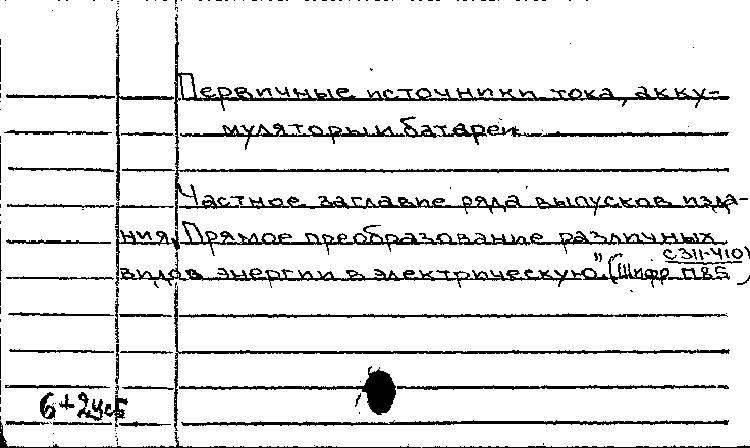 Первичные источники тока, акку-
муляторы и батареи.
Частное заглавие ряда выпусков изда-
ния „Прямое преобразование различных
видов энергии в электрическую" (Шифр П85
с 311-410)